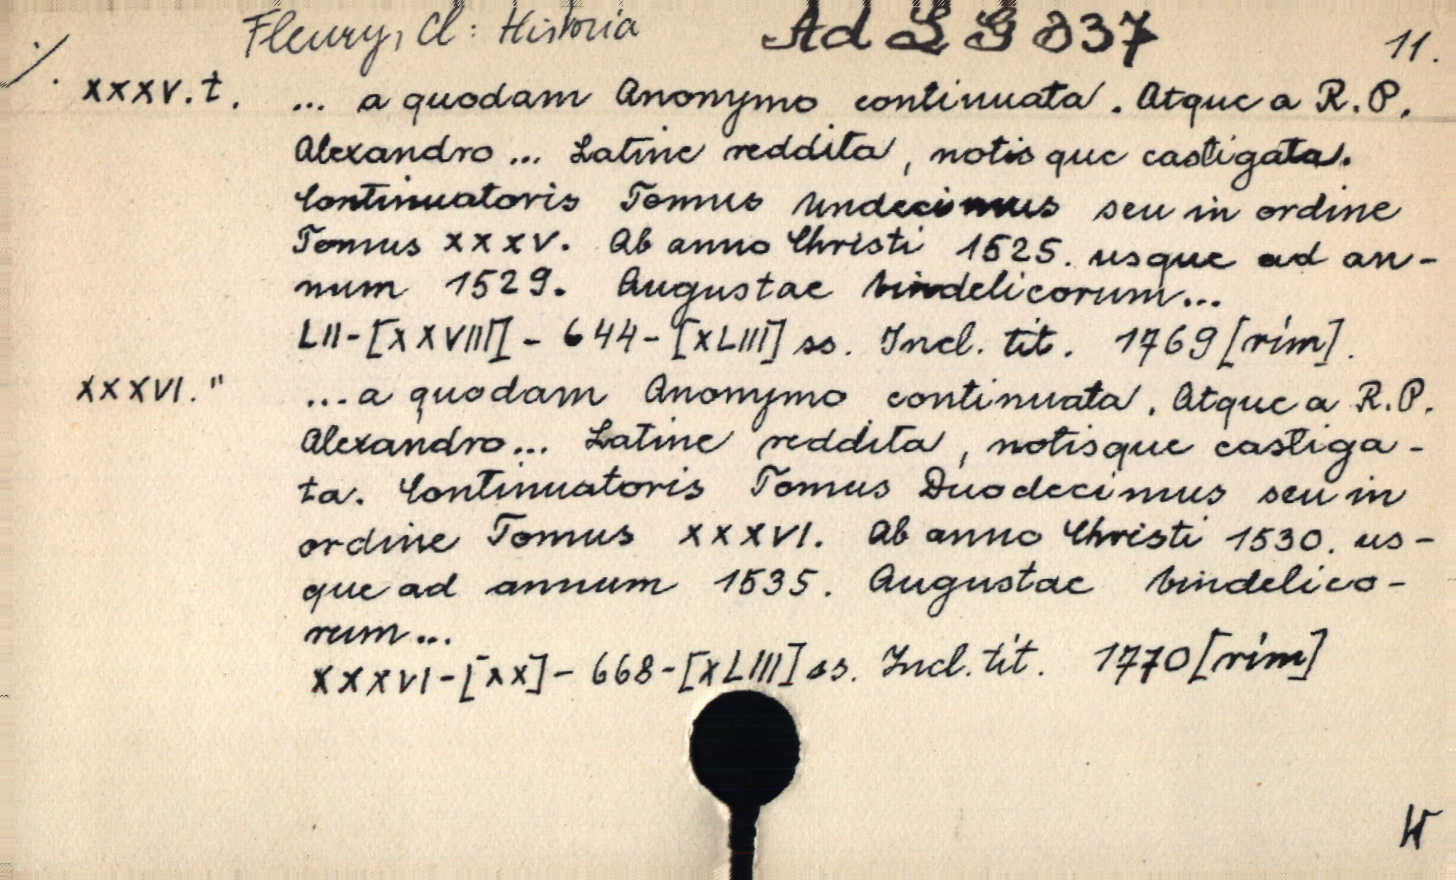 ./. Fleury, Cl: Historia Ad LG 837 11.
XXXV. t. ... a quodam Anonymo continuata. Atque a R. P.
Alexandro ... Latine reddita, notisque castigata.
Continuatoris Tomus Undecimus seu in ordine
Tomus XXXV. Ab anno Christi 1525. usque ad an-
num 1529. Augustae Vindelicorum...
LII-[XXVIII] - 644-[XLIII] ss. Incl. tit. 1769 [rím].
XXXVI. " ... a quodam Anonymo continuata. Atque a R. P.
Alexandro... Latine reddita, notisque castiga-
ta. Continuatoris Tomus Duodecimus seu in
ordine Tomus XXXVI. Ab anno Christi 1530. us-
que ad annum 1535. Augustae Vindelico-
rum...
XXXVI-[XX] - 668-[XLIII] ss. Incl. tit. 1770 [rím]